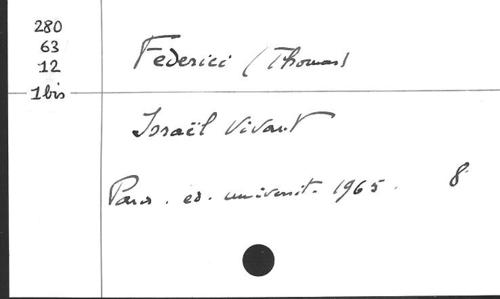 280
63
12
1 bis
Federici (Thomas)
Israël Vivant
Paris. ed. universit. 1965. 8